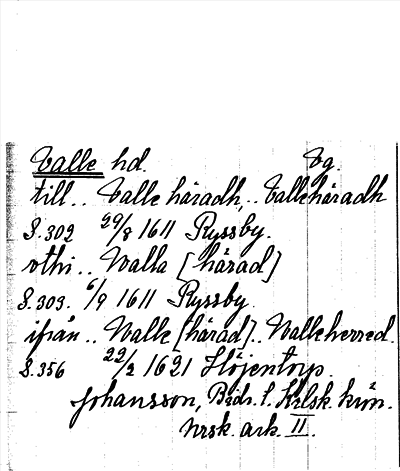 Valle hd. Vg.
till.. Valle häradh,.. Valle häradh
S. 302 29/8 1611 Ryssby.
uthi.. Walla [härad]
S. 303. 6/9 1611 Ryssby.
ifrån.. Walle [härad].. Walleherred.
S. 356 22/2 1621 Höjentorp.
Johansson, Bidr. t. Krlsk. krön.
hrsk. ark. II.